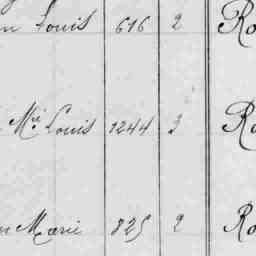 Louis 616 2 Ro
Mie Louis 1244 3 Ro
Marie 825 2 Ro